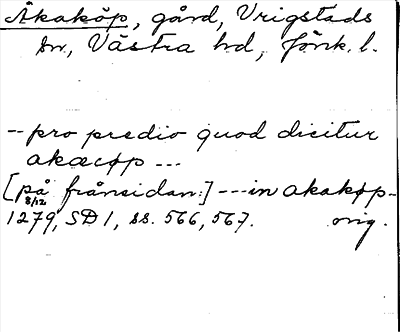 Åkaköp, gård, Vrigstads
sn, Västra hd, Jönk. l.
-- pro predio quod dicitur
akacøp ---
[på frånsidan:] --- in akakøp-
8/12
1279, SD 1, ss. 566, 567. orig.